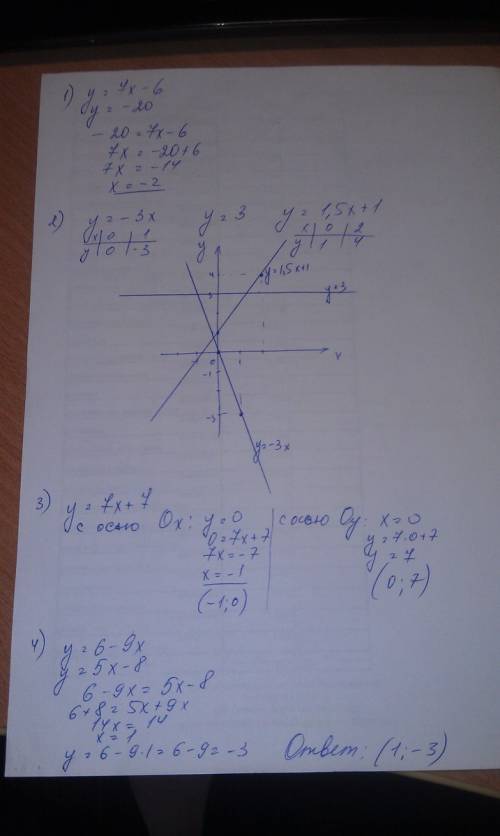 1) y = 7x - 6
y = -20
-20 = 7x - 6
7x = -20 + 6
7x = -14
x = -2
2) y = -3x y = 3 y = 1,5x + 1
x 0 1 x 0 2
y 0 -3 y 1 4
y
4 y = 1,5x + 1
3 y = 3
0 1 x
-1
-3
y = -3x
3) y = 7x + 7
с осью Ox: y = 0 с осью Oy: x = 0
0 = 7x + 7 y = 7·0 + 7
7x = -7 y = 7
x = -1 (0; 7)
(-1; 0)
4) y = 6 - 9x
y = 5x - 8
6 - 9x = 5x - 8
6 + 8 = 5x + 9x
14x = 14
x = 1
y = 6 - 9·1 = 6 - 9 = -3 Ответ: (1; -3)